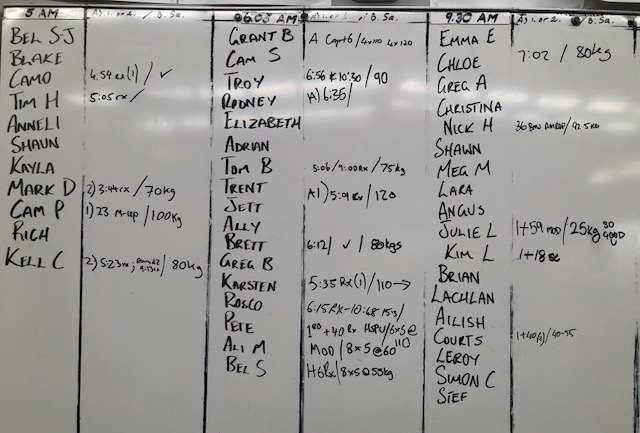 5 AM A) 1. or 2. / B. 5a.
BEL S-J
BLAKE
CAMO 4:54 rx (1) / ✓
TIM H 5:05 rx /
ANNELI
SHAUN
KAYLA
MARK D 2) 3:44 rx / 70kg
CAM P 1) 23 M-up / 100kg
RICH
KELL C 2) 5:23 rx; / 80kg
06.05 AM A) 1. or 2. / B. 5a.
GRANT B A Cap+6 / 4x110 4x120
CAM S
TROY 6:56 10:30 / 90
RODNEY A) 6:36 /
ELIZABETH
ADRIAN
TOM B 5:06 / 9:00 RX / 75kg
TRENT A1) 5:09 Rx / 120
JETT
ALLY
BRETT 6:12 / ✓ / 80kgs
GREG B
KARSTEN 5:35 Rx (1) / 110 →
ROSCO 6:15 RX - 10:68
PETE 1 RD + 40 Rx HSPU / 6x5 @ 110
ALI M MOD / 8 x 5 @ 60
BEL S Rx / 8x5 @ 55kg
9.30 AM A) 1. or 2. / B. 5a.
EMMA E
CHLOE 7:02 / 80kg
GREG A
CHRISTINA
NICK H AMRAP / 92.5 KG
SHAWN
MEG M
LARA
ANGUS
JULIE L 1+59 MOD / 25kg
KIM L 1+18
BRIAN
LACHLAN
AILISH
COURTS 1+40 / 40-55
LEROY
SIMON C
STEF